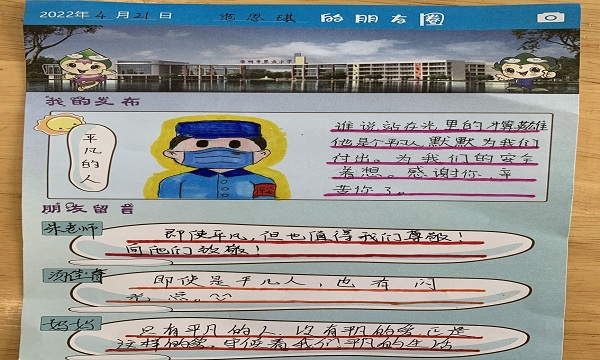 2022年4月21日 的朋友圈
我的发布
平凡的人
谁说站在光里的才算英雄
他是个平凡人默默为我们
付出。为我们的安全
着想。感谢你,辛
苦你了。
朋友留言
朱老师
即使平凡,但也值得我们尊敬!
向他们致敬!
即使是平凡人,也有闪
光点。
妈妈
只有平凡的人,没有平凡的爱,正是
这样的爱,守候着我们平凡的生活